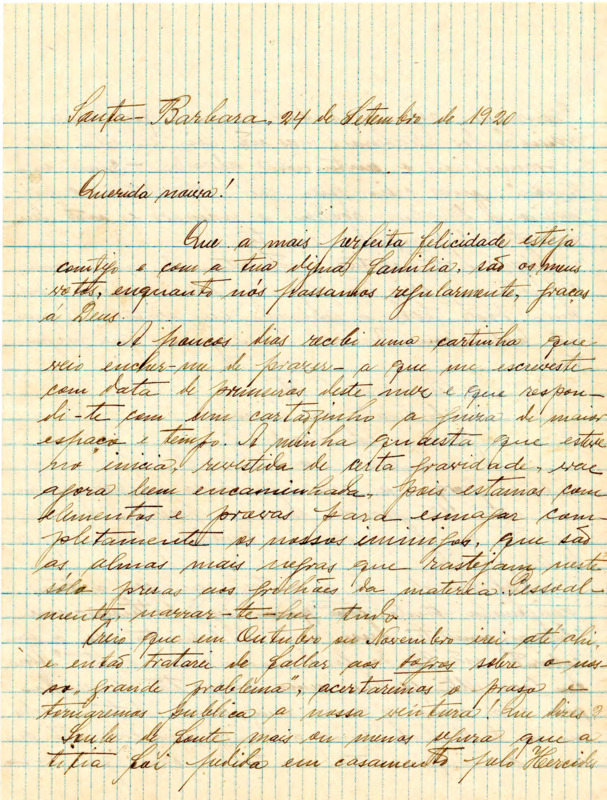 Santa-Barbara, 24 de Setembro de 1920
Querida noiva!
Que a mais perfeita felicidade esteja
comtigo e com a tua digna familia, são os meus
votos, enquanto nós passamos regularmente, graças
a Deus.
A poucos dias recebi uma cartinha que
veio encher-me de prazer - a que me escreveste
com data de primeiros deste mez e que respon-
di-te com um cartãozinho a de maior
espaço e tempo. A minha questa que esteve
no inicia, revestida de certa gravidade, vae
agora bem encaminhada, pois estamos com
elementos e provas para esmagar com-
pletamente os nossos inimigos, que são
as almas mais negras que rastejam neste
sólo presas aos grilhões da materia. Pessoal-
mente, narrar-te-hei tudo.
Creio que em Outubro ou Novembro irei até ahi,
e então tratarei de fallar aos sogros sobre o nos-
so „grande problema”, acertaremos o praso e
tornaremos publica a nossa ventura! Que dizes?
Soube de fonte mais ou menos segura que a
titia foi pedida em casamento pelo Hercides